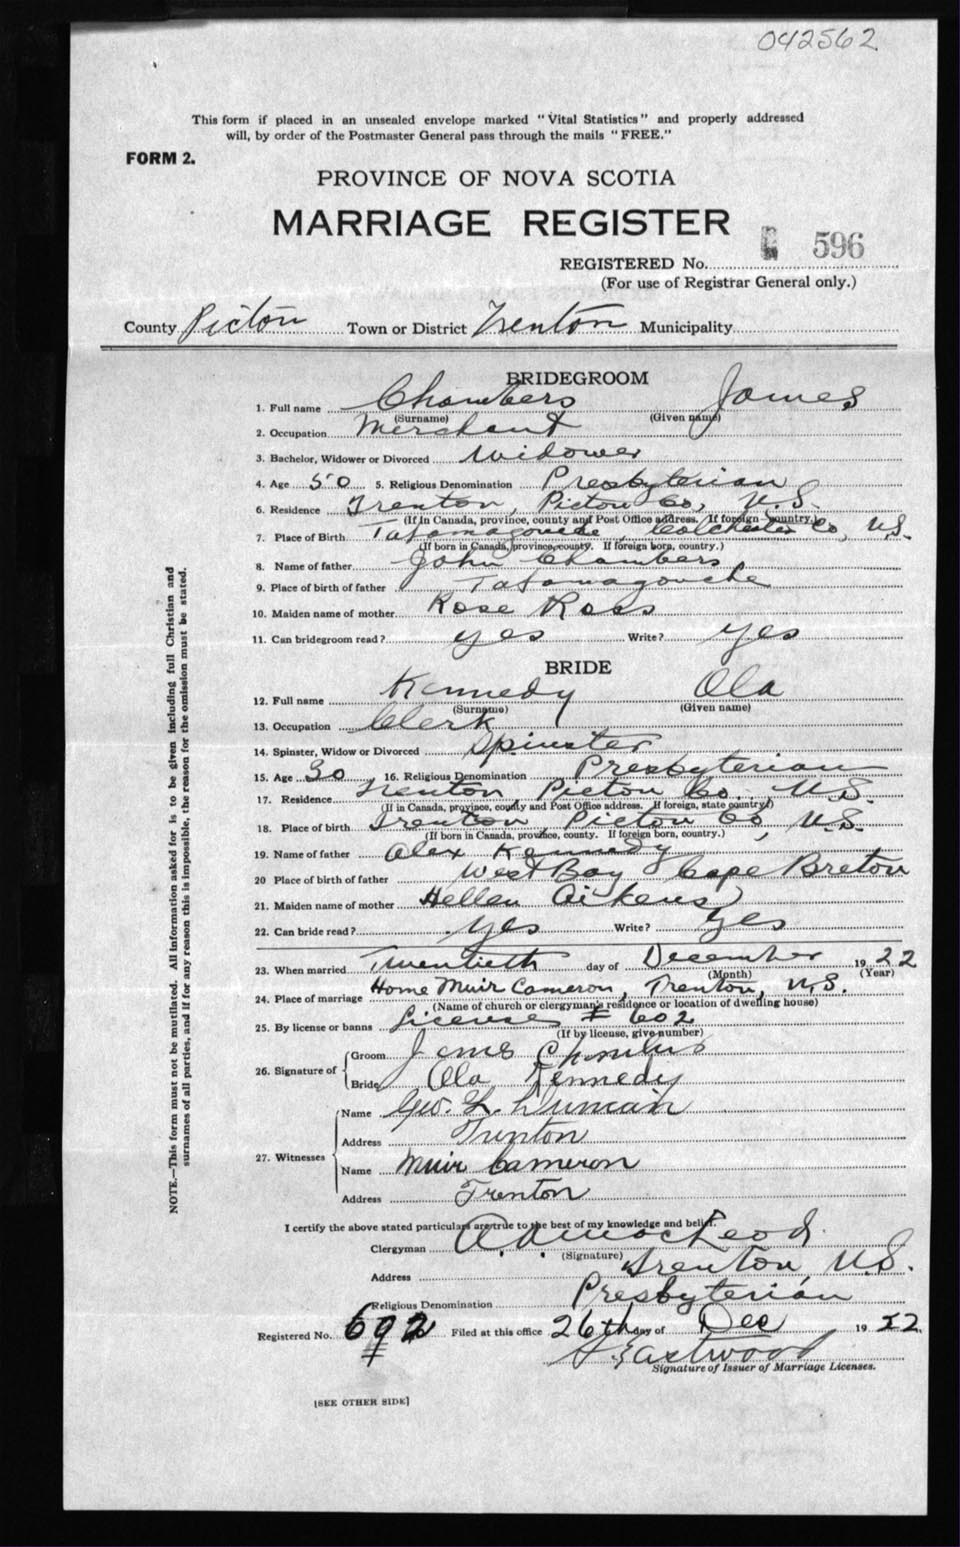 042562
This form if placed in an unsealed envelope marked "Vital Statistics" and properly addressed
will, by order of the Postmaster General pass through the mails "FREE."
FORM 2.
PROVINCE OF NOVA SCOTIA
MARRIAGE REGISTER
REGISTERED No. 596
(For use of Registrar General only.)
County Pictou Town or District Trenton Municipality
BRIDEGROOM
1. Full name Chambers James
(Surname) (Given name)
2. Occupation Merchant
3. Bachelor, Widower or Divorced Widower
4. Age 50 5. Religious Denomination Presbyterian
6. Residence Trenton, Pictou Co, N.S.
(If in Canada, province, county and Post Office address. If foreign country.)
7. Place of Birth Tatamagouche, Colchester Co, N.S.
(If born in Canada, province, county. If foreign born, country.)
8. Name of father John Chambers
9. Place of birth of father Tatamagouche
10. Maiden name of mother Rose Ross
11. Can bridegroom read? yes Write? yes
BRIDE
12. Full name Kennedy Ola
(Surname) (Given name)
13. Occupation Clerk
14. Spinster, Widow or Divorced Spinster
15. Age 30 16. Religious Denomination Presbyterian
17. Residence Trenton, Pictou Co. N.S.
(If in Canada, province, county and Post Office address. If foreign, state country)
18. Place of birth Trenton, Pictou Co, N.S.
(If born in Canada, province, county. If foreign born, country.)
19. Name of father Alex Kennedy
20 Place of birth of father West Bay Cape Breton
21. Maiden name of mother Hellen Aikens
22. Can bride read? yes Write? yes
23. When married Twentieth day of December 1922
(Month) (Year)
24. Place of marriage Home Muir Cameron, Trenton, N.S.
(Name of church or clergyman's residence or location of dwelling house)
25. By license or banns License # 602
(If by license, give number)
26. Signature of Groom James Chambers
Bride Ola Kennedy
27. Witnesses Name Geo. L. Duncan
Address Trenton
Name Muir Cameron
Address Trenton
I certify the above stated particulars are true to the best of my knowledge and belief.
Clergyman A. D. MacLeod
(Signature)
Address Trenton, N.S.
Religious Denomination Presbyterian
Registered No. 692 Filed at this office 26th day of Dec 1922.
Eastwood
Signature of Issuer of Marriage Licenses.
[SEE OTHER SIDE]
NOTE.—This form must not be mutilated. All information asked for is to be given including full Christian and
surnames of all parties, and if for any reason this is impossible, the reason for the omission must be stated.